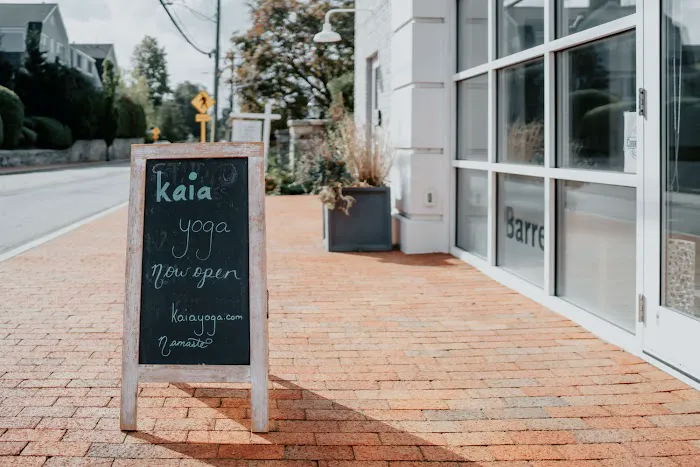 kaia
yoga
now open
kaiayoga.com
namaste
Barre